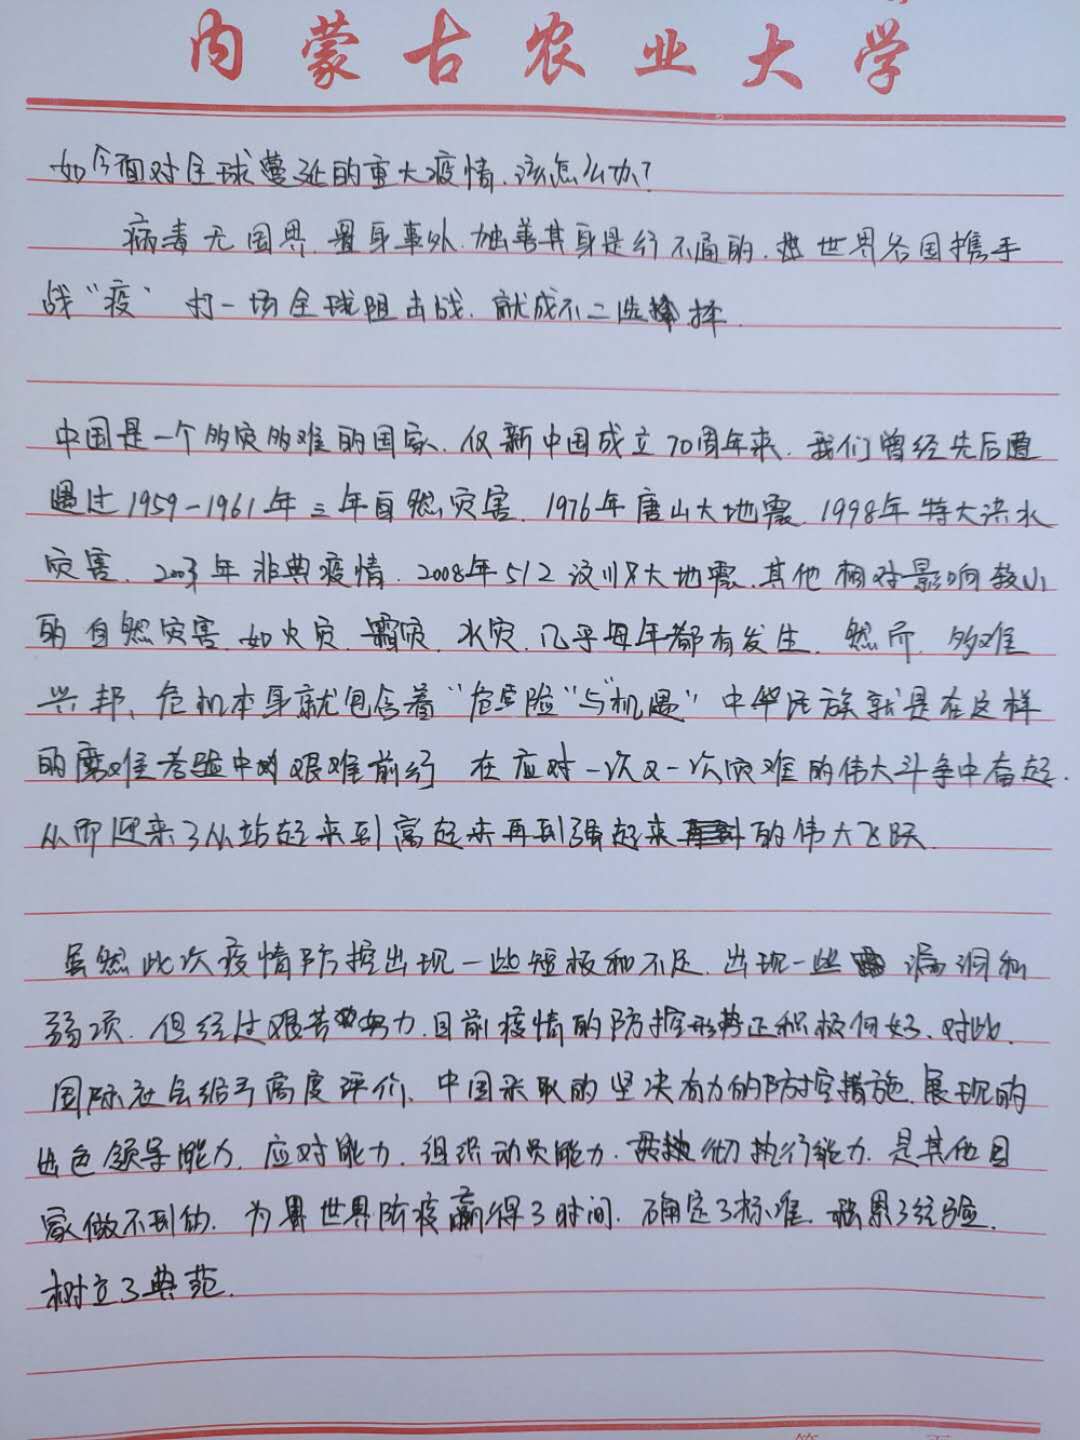 内蒙古农业大学
如今面对全球蔓延的重大疫情,该怎么办?
病毒无国界,置身事外,独善其身是行不通的,世界各国携手
战“疫”打一场全球阻击战,就成不二选择.
中国是一个多灾多难的国家、仅新中国成立70周年来,我们曾经先后遭
遇过1959-1961年三年自然灾害、1976年唐山大地震、1998年特大洪水
灾害、2003年非典疫情、2008年512汶川大地震、其他相对影响较小
的自然灾害,如火灾、霜灾、水灾,几乎每年都有发生.然而,多难
兴邦、危机本身就包含着“危险”与“机遇”中华民族就是在这样
的磨难考验中艰难前行 在应对一次又一次灾难的伟大斗争中奋起.
从而迎来了从站起来到富起来再到强起来的伟大飞跃.
虽然此次疫情防控出现一些短板和不足,出现一些漏洞和
弱项,但经过艰苦努力,目前疫情的防控形势正积极向好、对此,
国际社会给予高度评价、中国采取的坚决有力的防控措施,展现的
出色领导能力、应对能力、组织动员能力、贯彻执行能力,是其他国
家做不到的,为世界防疫赢得了时间、确定了标准、积累了经验、
树立了典范.